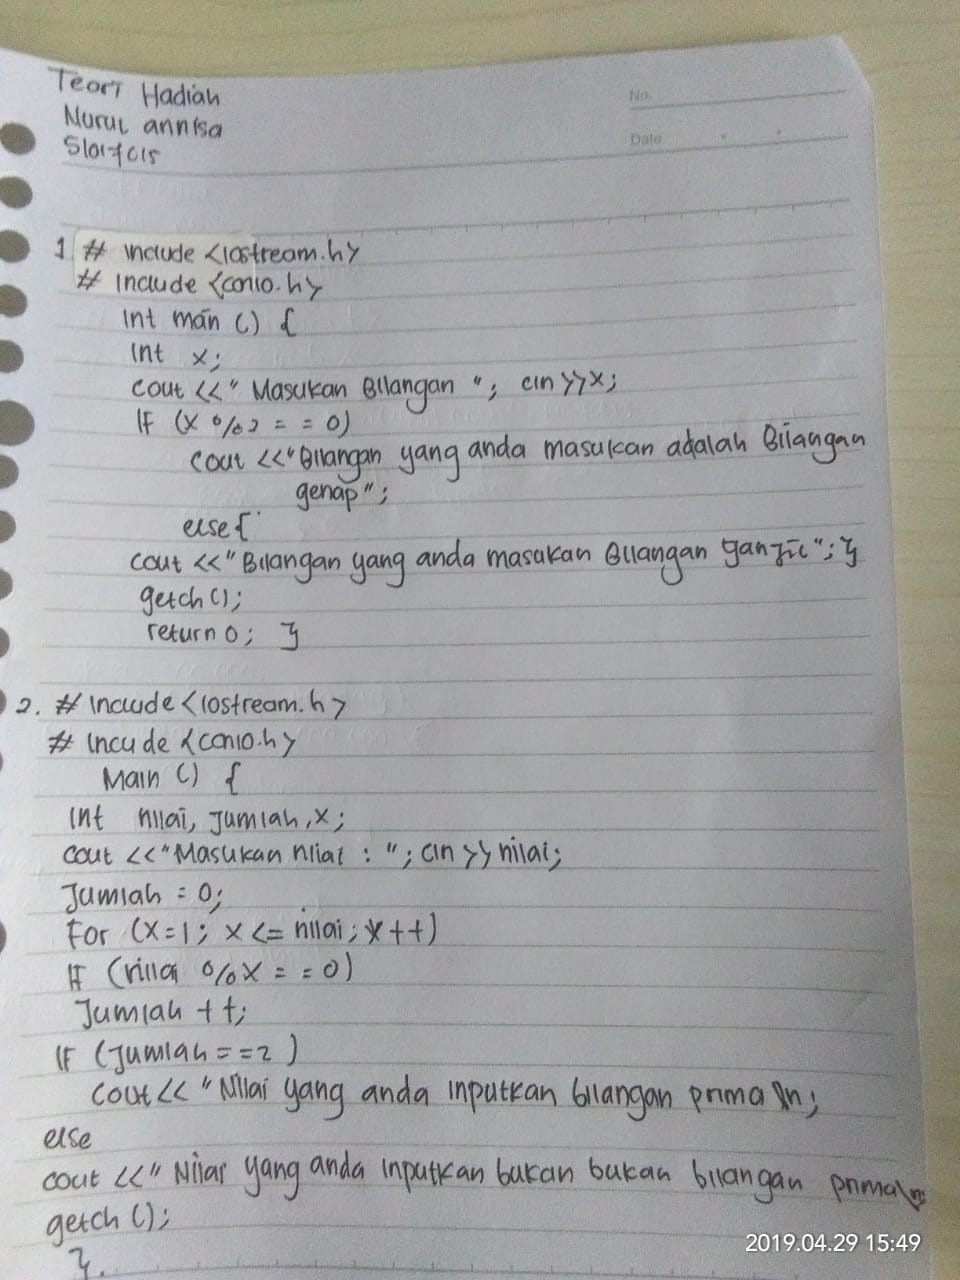 Teori Hadiah
Nurul annisa
No.
Date
1 # include <iostream.h>
# include <conio.h>
int main () {
int x;
cout << " Masukan Bilangan "; cin >> x;
if (x % 2 = = 0)
cout << "Bilangan yang anda masukan adalah Bilangan
genap";
else {
cout << "Bilangan yang anda masakan Bilangan ganjil"; }
getch ();
return 0; }
2. # include <iostream.h>
# incude <conio.h>
Main () {
int nilai, jumlah, x;
cout << "Masukan nilai : "; cin >> nilai;
Jumlah = 0;
for (x=1; x <= nilai; x++)
if (nilai % x = = 0)
Jumlah ++;
if (jumlah = = 2 )
cout << "Nilai yang anda inputkan bilangan prima \n;
else
cout << " Nilai yang anda inputkan bukan bukan bilangan prima\n
getch ();
}.
2019.04.29 15:49